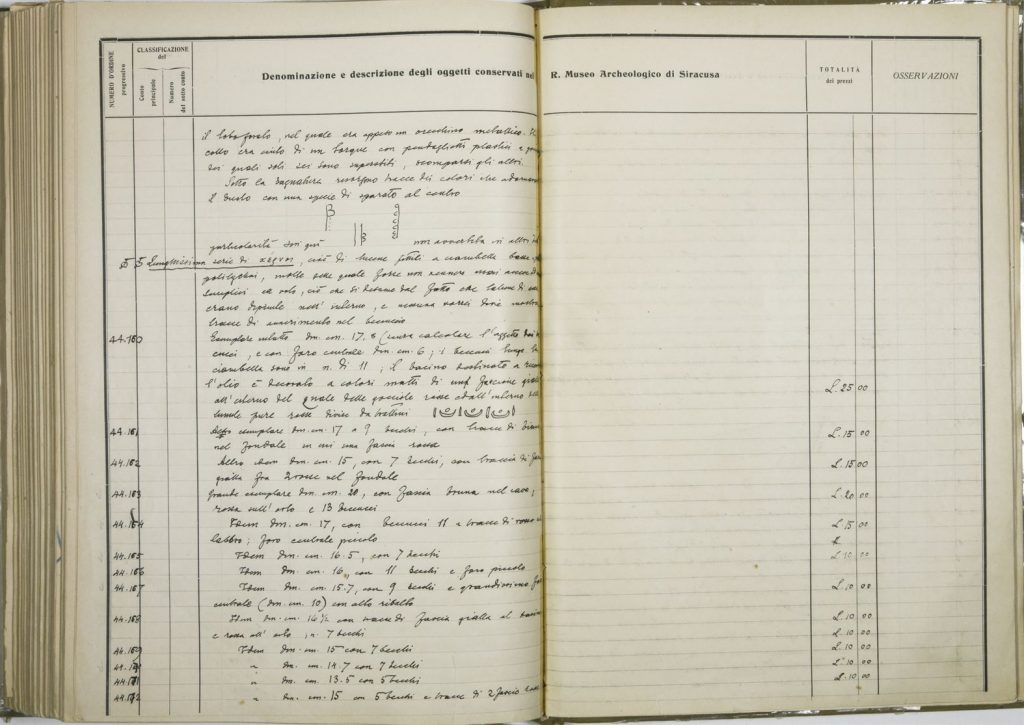 NUMERO D'ORDINE progressivo
CLASSIFICAZIONE del
Conto principale
Numero del sotto conto
Denominazione e descrizione degli oggetti conservati nel R. Museo Archeologico di Siracusa
TOTALITÀ dei prezzi
OSSERVAZIONI
il lobo forato, nel quale era appeso un orecchino metallico. Il
collo era cinto di un torque con pendaglietti plastici a
dei quali soli sei sono superstiti, scomparsi gli altri.
Sotto la ingubbiatura tracce dei colori che adornavano
il busto con una specie di apparato al centro
particolarità non avvertita in altri
Lunghissima serie di κέρνοι, cioè di lucerne fittili a ciambelle basse
polilychni, molte delle quali forse non vennero mai accese
semplici ex voto, ciò che si desume dal fatto che talune di esse
erano dipinte nell'interno, e nessuna vorrei dire mostra
tracce di annerimento nel beccuccio
44.160 Esemplare intatto dm. cm. 17.8 (senza calcolare l'aggetto dei
cucci, e con foro centrale dm. cm. 6; i beccucci lungo la
ciambella sono in n. di 11; il bacino destinato a
l'olio è decorato a colori matti di una fascione
all'esterno del quale delle gocciole rosse e dall'interno delle
lunule pure rosse divise da trattini L. 25 00
44.161 Altro esemplare dm. cm. 17 a 9 becchi, con tracce di
nel fondale su cui una fascia rossa L. 15 00
44.162 Altro idem dm. cm. 15, con 7 becchi, con traccia di
gialla fra 2 rosse nel fondale L. 15 00
44.163 Grande esemplare dm. cm. 20, con fascia bruna nel cavo,
rossa sull'orlo e 13 beccucci L. 20 00
44.164 Idem dm. cm. 17, con beccucci 11 e tracce di rosso
labbro; foro centrale piccolo L. 15 00
44.165 Idem dm. cm. 16.5, con 7 becchi L. 10 00
44.166 Idem dm. cm. 16, con 11 becchi e foro piccolo
44.167 Idem dm. cm. 15.7, con 9 becchi e grandissimo foro
centrale (dm. cm. 10) con alto ribalto L. 10 00
44.168 Idem dm. cm. 14 ½ con tracce di fascia gialla al bacino
e rossa all'orlo; n. 7 becchi L. 10 00
44.169 Idem dm. cm. 15 con 7 becchi L. 10 00
" dm. cm. 14.7 con 7 becchi L. 10 00
44.171 " dm. cm. 13.5 con 5 becchi L. 10 00
44.172 " dm. cm. 15 con 5 becchi e tracce di 2 fascie rosse